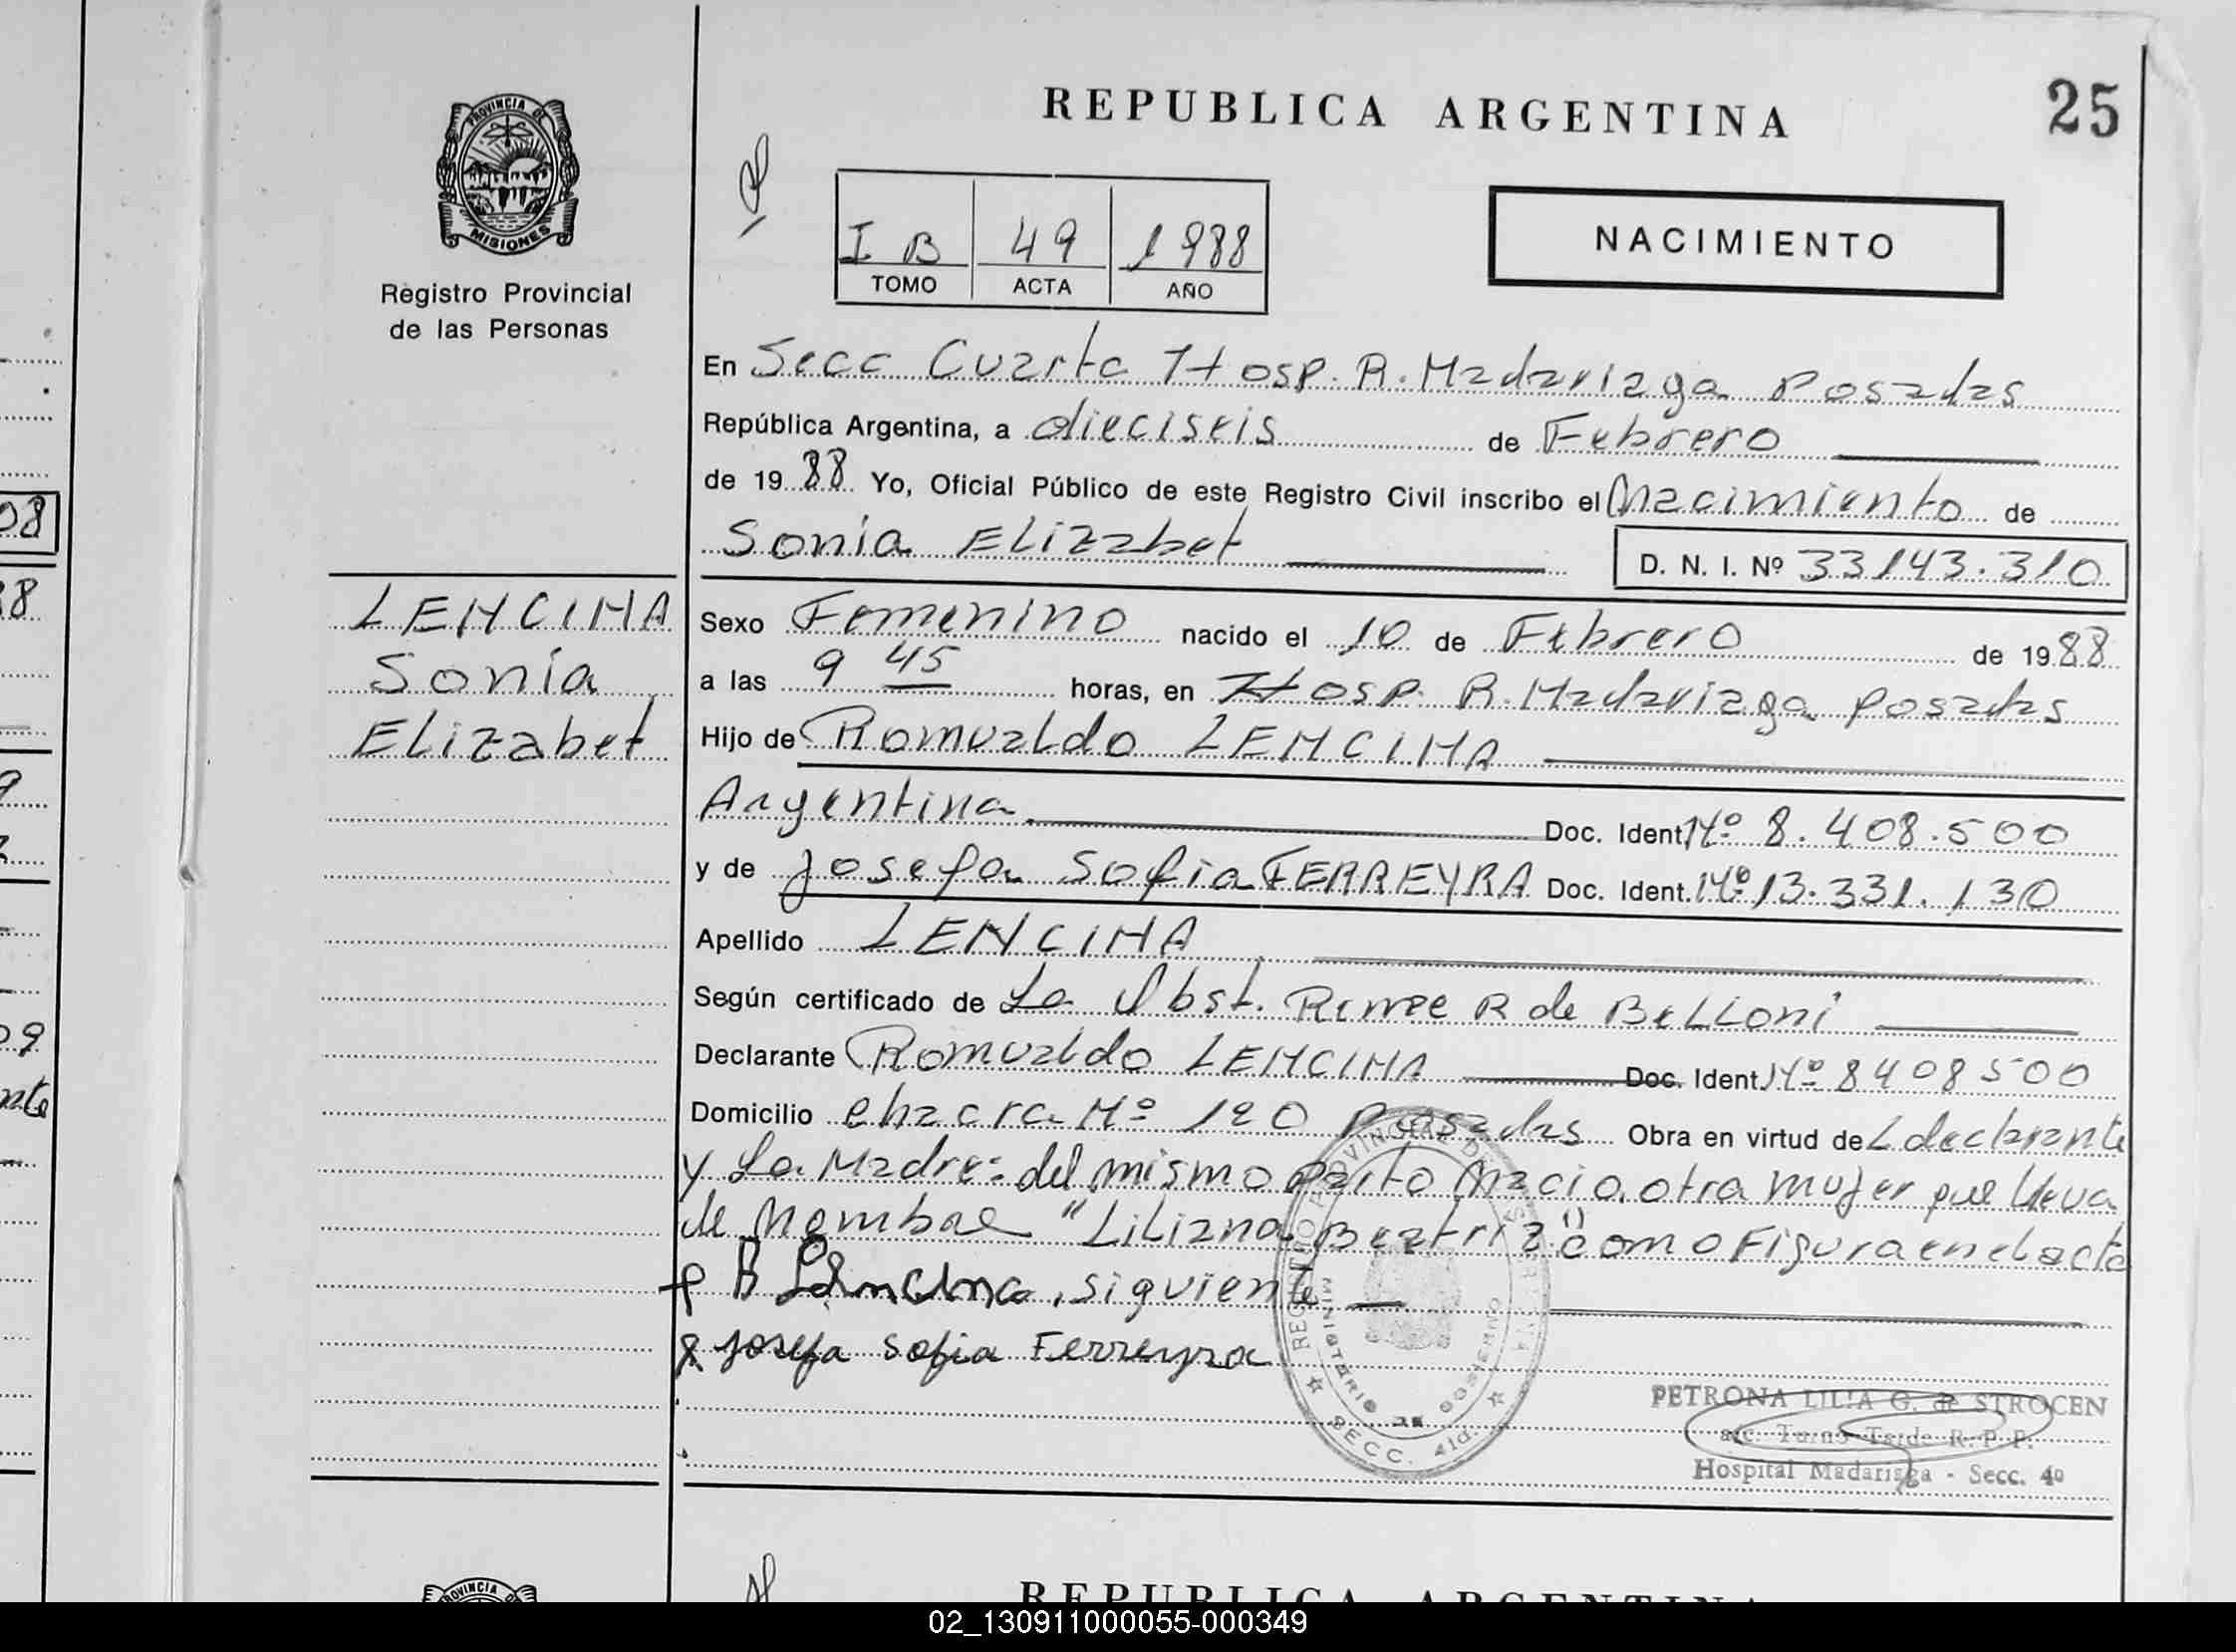 REPUBLICA ARGENTINA
25
PROVINCIA DE
MISIONES
Registro Provincial
de las Personas
I B 49 1988
TOMO ACTA AÑO
NACIMIENTO
En Secc Cuarta Hosp. R. Madariaga Posadas
República Argentina, a dieciseis de Febrero
de 19 88 Yo, Oficial Público de este Registro Civil inscribo el Nacimiento de
Sonia Elizabet
D. N. I. Nº 33143.310
LENCINA
Sonia
Elizabet
Sexo Femenino nacido el 10 de Febrero de 1988
a las 9 45 horas, en Hosp. R. Madariaga Posadas
Hijo de Romualdo LENCINA
Argentina Doc. Ident Nº 8.408.500
y de Josefa Sofia FERREYRA Doc. Ident. Nº 13.331.130
Apellido LENCINA
Según certificado de La Obst. R de Belloni
Declarante Romualdo LENCINA Doc. Ident Nº 8408500
Domicilio chacra Nº 120 Posadas Obra en virtud de L declarante
y La Madre: del mismo parto Nacio otra mujer que lleva
de Nombre "Liliana Beatriz" como Figura en el acta
R Lencina, siguiente
Josefa Sofia Ferreyra
REGISTRO PROVINCIAL DE
MINISTERIO DE GOBIERNO
SECC. 4ta.
PETRONA LILIA G. de STROCEN
Turno Tarde R. P. P.
Hospital Madariaga - Secc. 4º
08
88
9
09
nte
PROVINCIA
REPUBLICA ARGENTINA
02_130911000055-000349